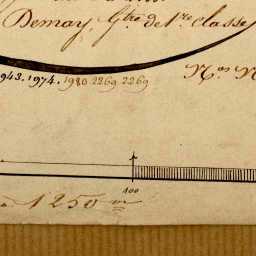 Demay, G^bre de 1^re classe
943. 1974. 1980 2269 2269
N^os N
100
à 1250 m